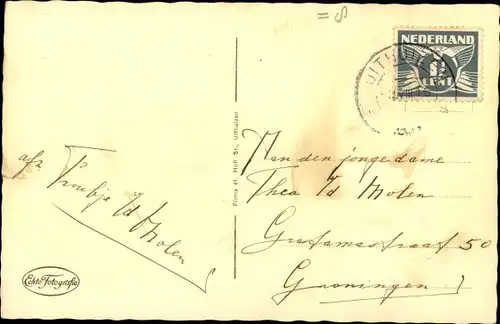 NEDERLAND
1½
CENT
UITHUIZEN
afz
Troubje v/d Molen
Firma H. Holt Sr., Uithuizen
Aan den jonge dame
Thea v/d Molen
Grafamastraat 50
Groningen
Echte Fotografie